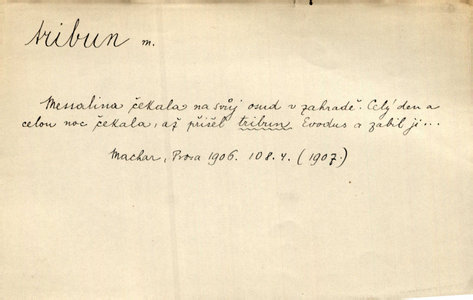 tribun m.
Messalina čekala na svůj osud v zahradě. Celý den a
celou noc čekala, až přišel tribun Evodus a zabil ji...
Machar, Prosa 1906. 108.4. (1907.)